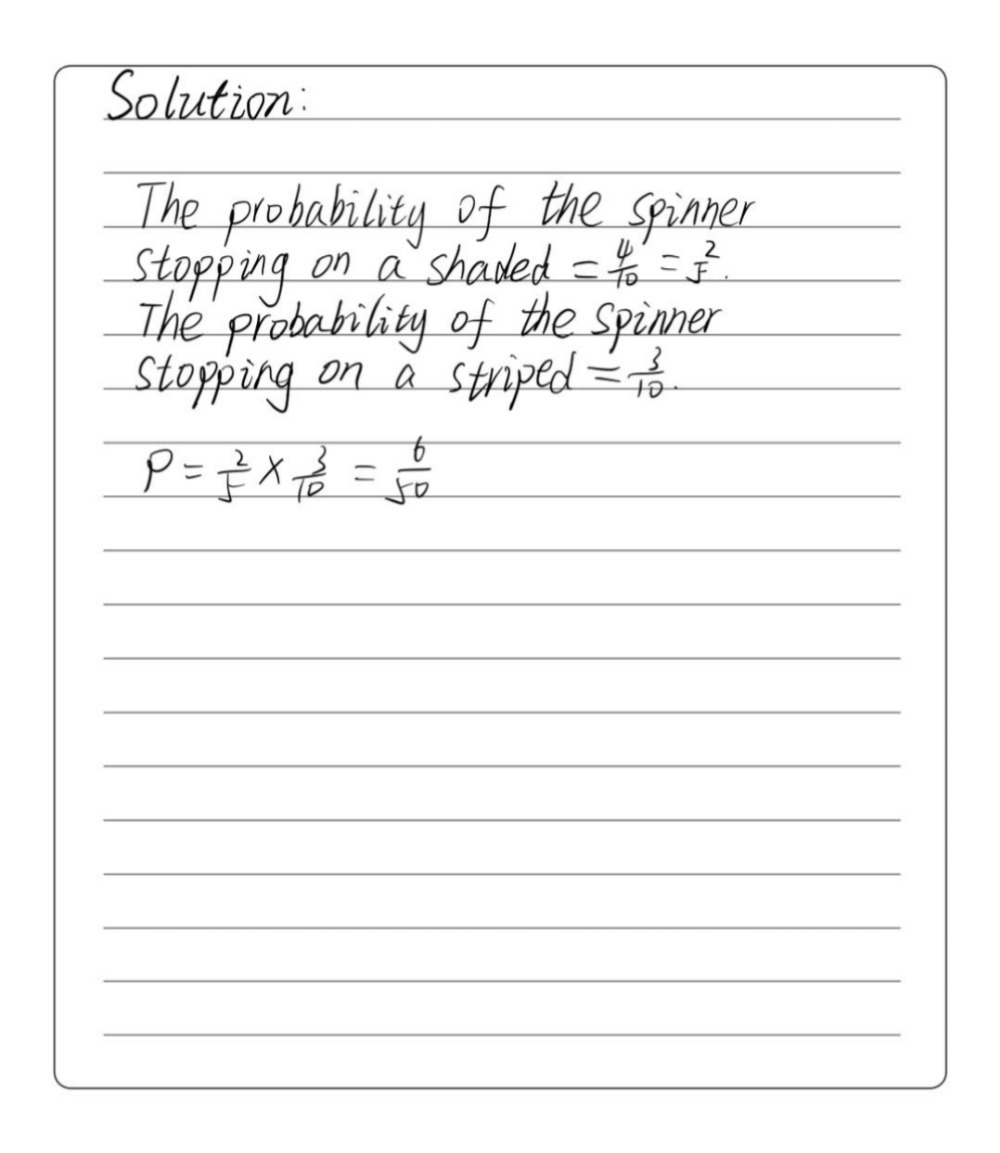 Solution:
The probability of the spinner
stopping on a shaded = 4/10 = 2/5.
The probability of the spinner
stopping on a striped = 3/10.
P = 2/5 × 3/10 = 6/50